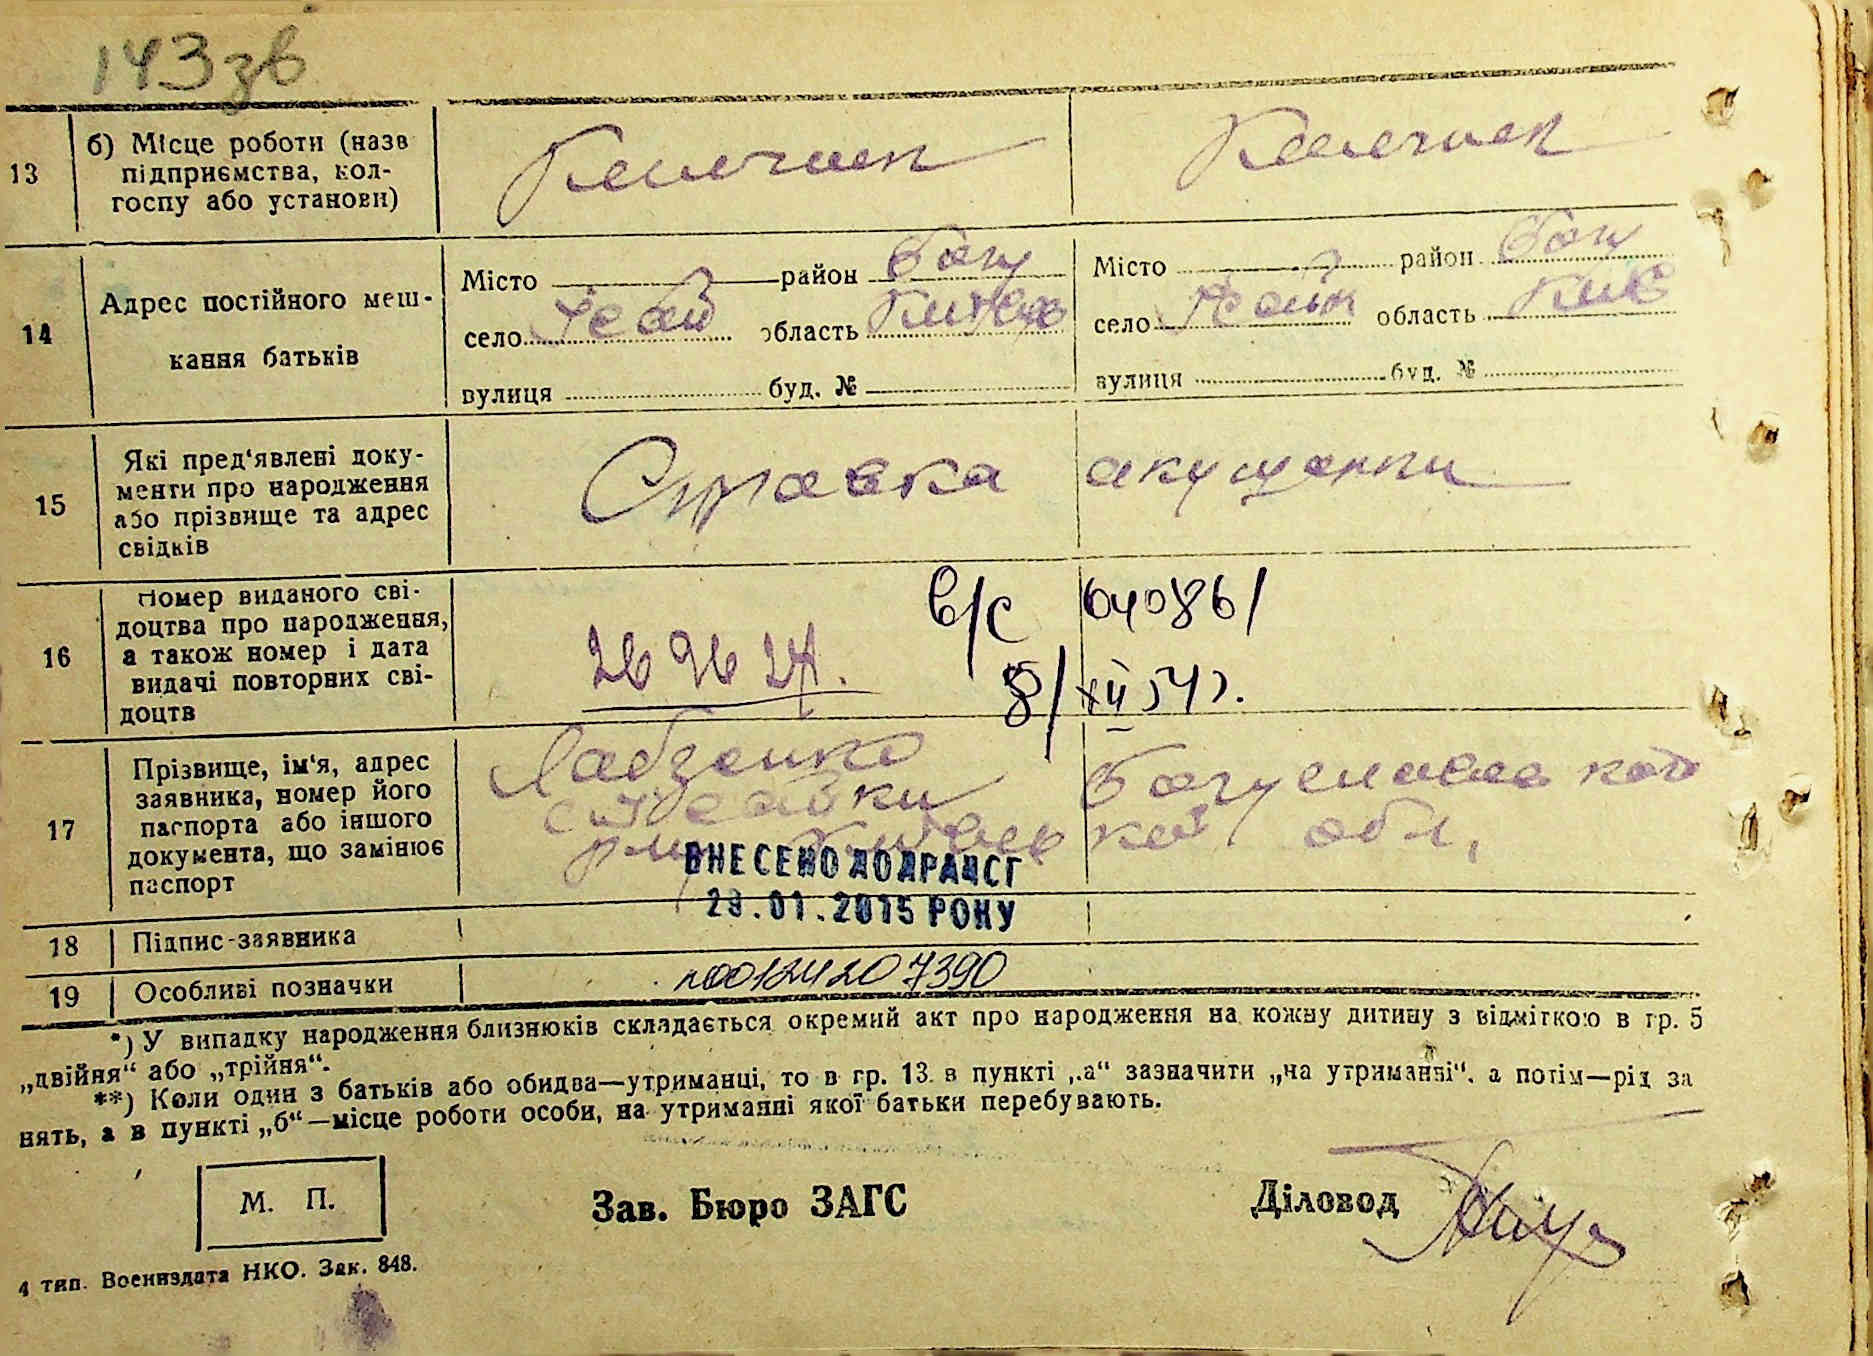 143зв
13 б) Місце роботи (назв
підприємства, кол-
госпу або установи)
14 Адрес постійного меш-
кання батьків
Місто район Богу
село область
вулиця буд. №
Місто район Богу
село область Київ
вулиця буд. №
15 Які пред'явлені доку-
менти про народження
або прізвище та адрес
свідків
Справка акушерки
16 Номер виданого сві-
доцтва про народження,
а також номер і дата
видачі повторних сві-
доцтв
в/с 040861
8/XII 54 г.
17 Прізвище, ім'я, адрес
заявника, номер його
паспорта або іншого
документа, що замінює
паспорт
Лабзенко
с. Богуславского
р-на Киевской обл.
ВНЕСЕНО ДО ДРАЦСГ
РОКУ
18 Підпис-заявника
19 Особливі позначки
№00124207390
*) У випадку народження близнюків складається окремий акт про народження на кожну дитину з відміткою в гр. 5
„двійня“ або „трійня“.
**) Коли один з батьків або обидва—утриманці, то в гр. 13 в пункті „а“ зазначити „на утриманні“, а потім—рід за
нять, а в пункті „б“—місце роботи особи, на утриманні якої батьки перебувають.
М. П.
Зав. Бюро ЗАГС
Діловод
4 тип. Воениздата НКО. Зак. 848.